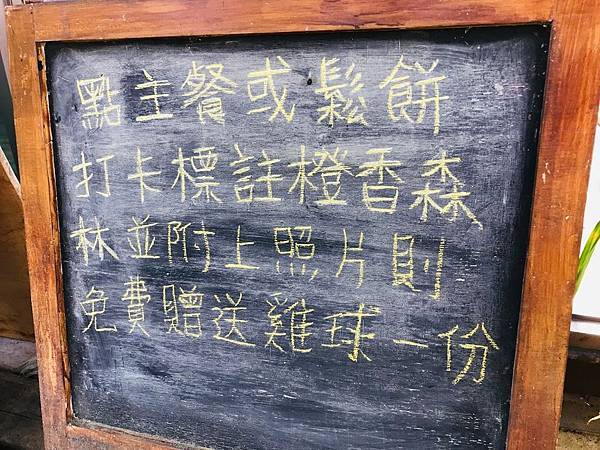 點主餐或鬆餅
打卡標註橙香森
林並附上照片則
免費贈送雞球一份